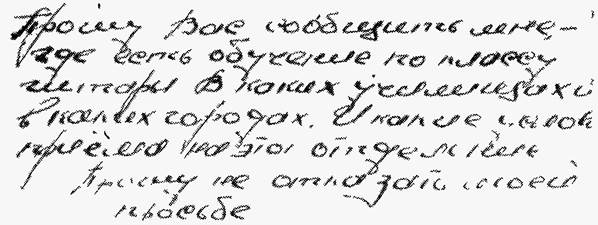 Прошу Вас сообщить мне –
где есть обучение по классу
гитары в каких училищах и
в каких городах. И какие услов
приёма на эти отделения
Прошу не отказать моей
просьбе